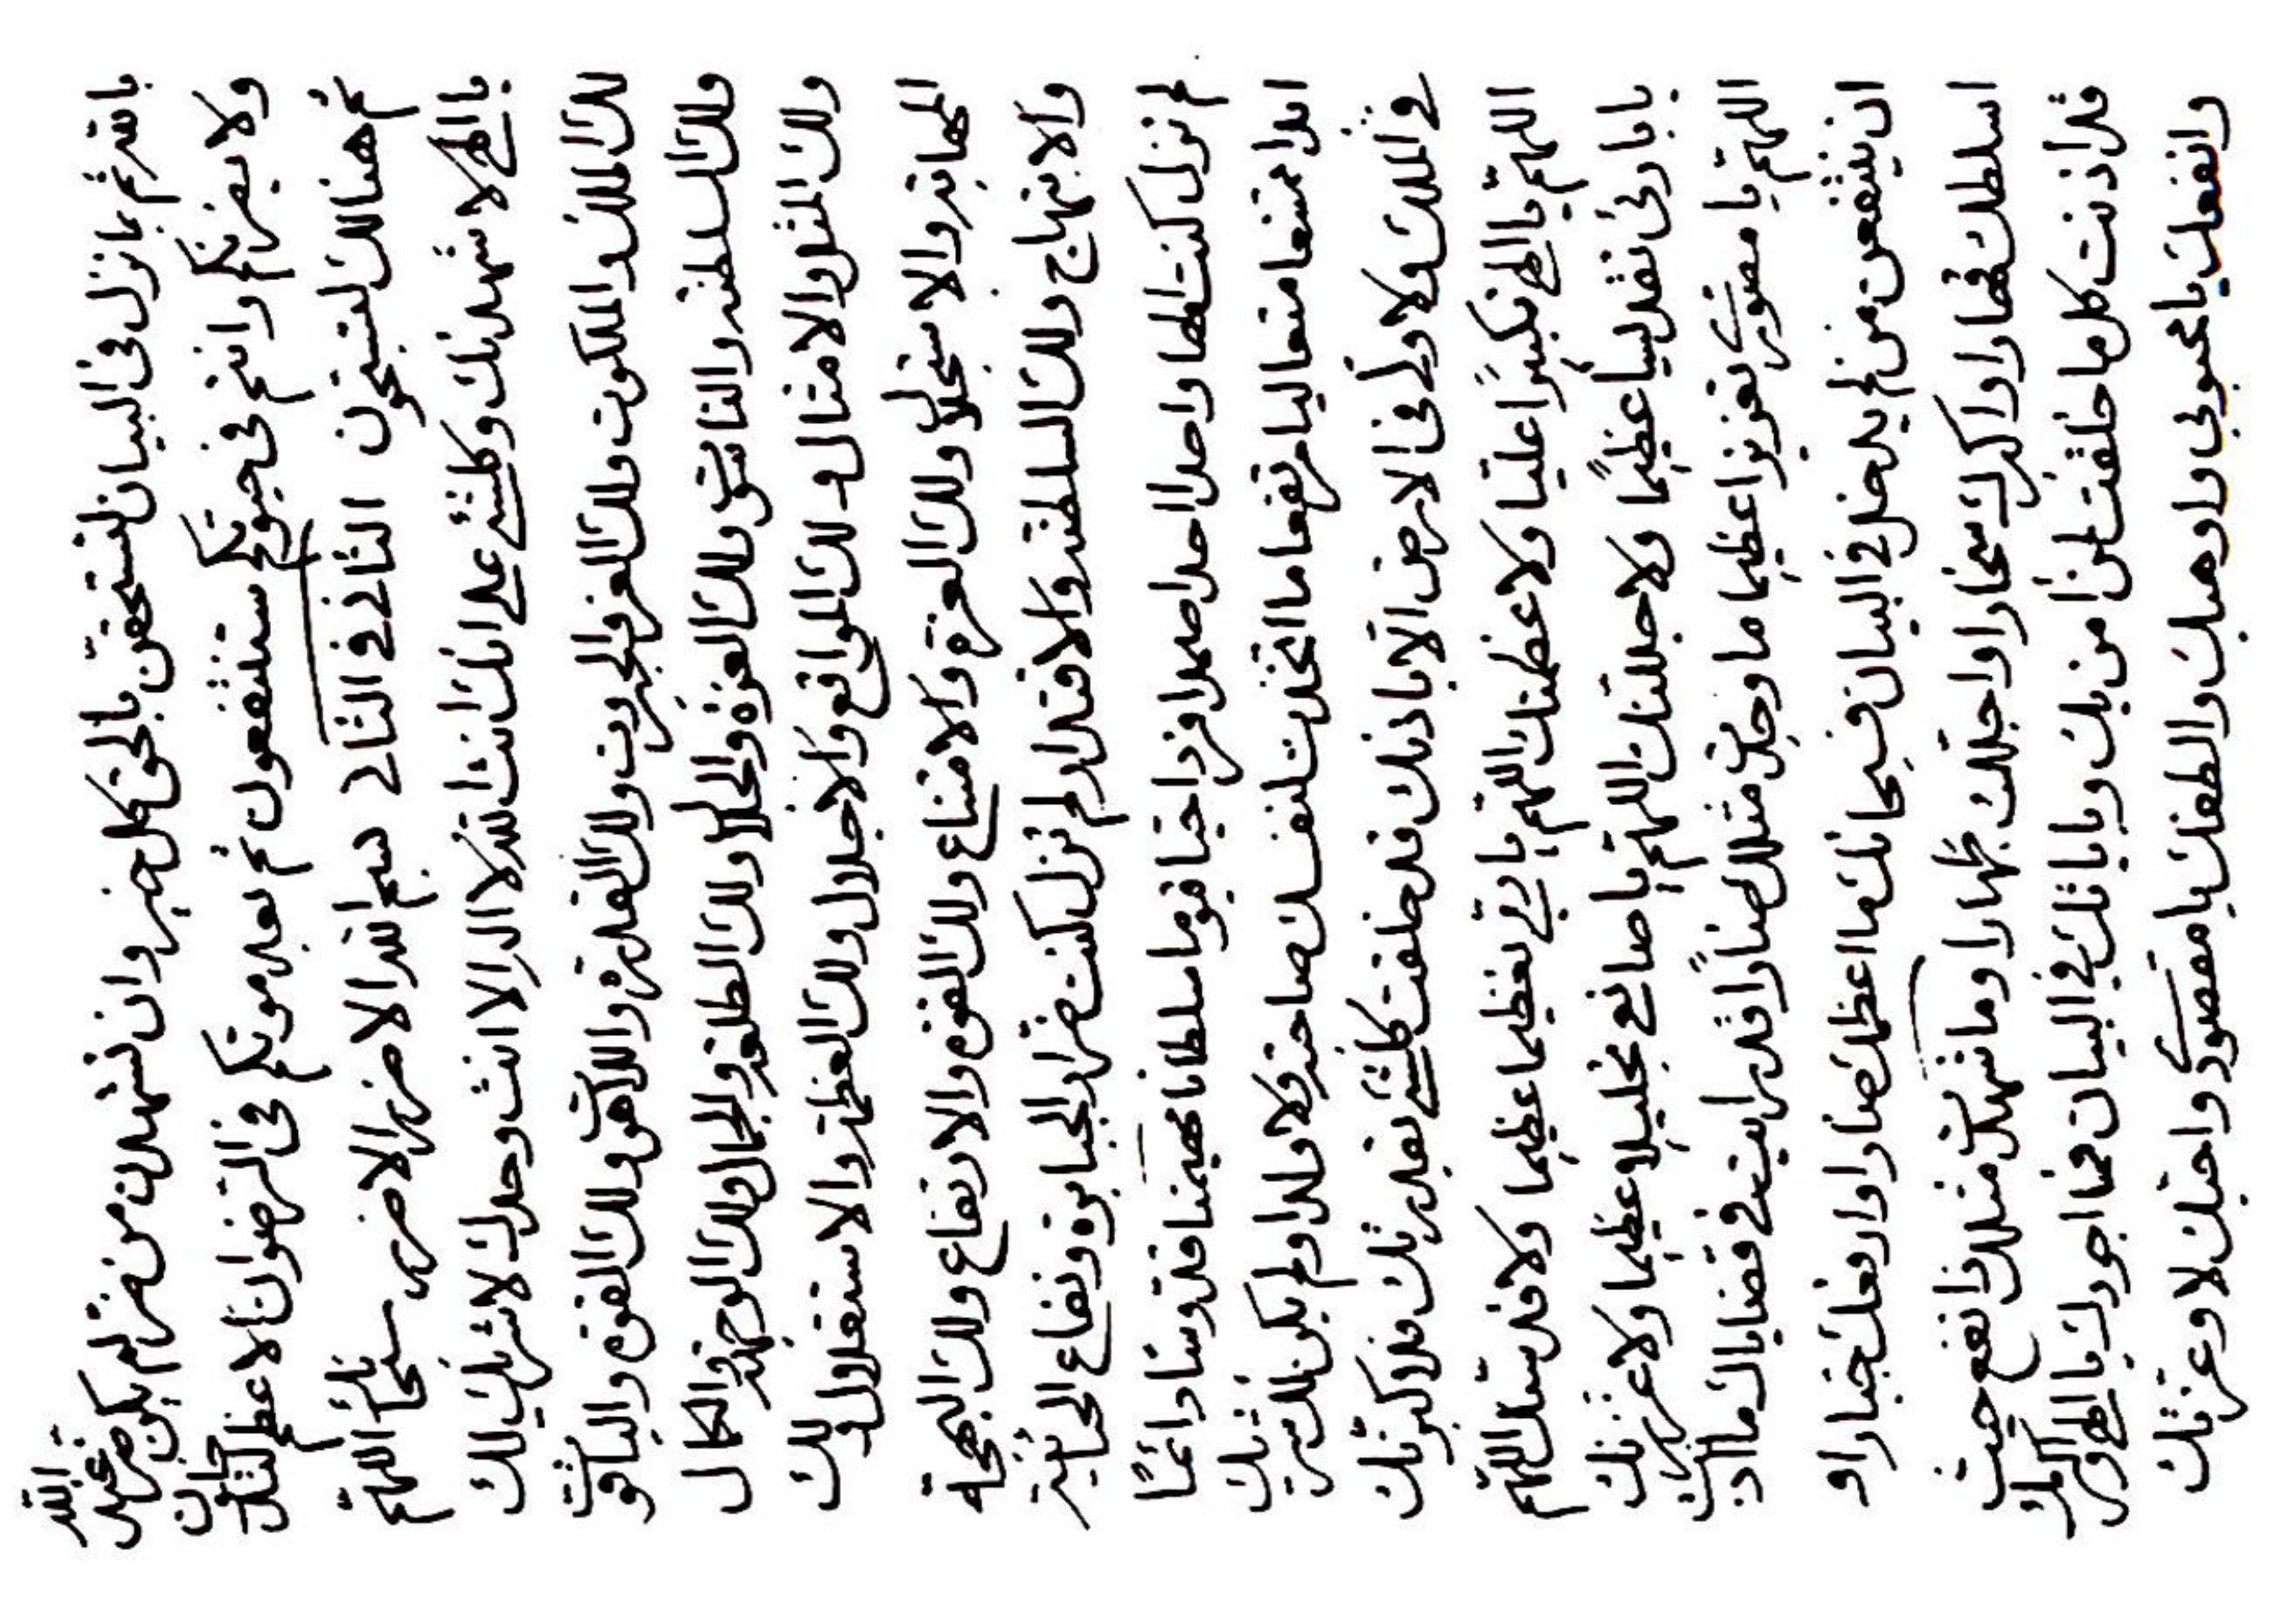 بالله ثم بما نزل في البيان لتستحقن بالحق كل خير وان تشهدن من ضر لم يكن من عند الله
ولا يعزبنكم وانتم في حيوتكم ستنتفعون ثم بعد موتكم في الرضوان الاعظم
ثم هنالك لتسبحون الثاني في الثاني بسم الله الاضر الاضر سبحانك اللهم
يا الهي لاشهدنك وكلشئ على انك انت الله لا اله الا انت وحدك لا شريك لك
لك الملك والملكوت ولك العز والجبروت ولك القدرة واللاهوت ولك القوة والياقوت
ولك السلطنة والناسوت ولك العزة والجلال ولك الطلعة والجمال ولك الوجهة والكمال
ولك المثل والامثال ولك المواقع والاجلال ولك العظمة والاستقلال ولك
المهابة والاستجلال ولك العزة والامتناع ولك القوة والارتفاع ولك البهجة
والابتهاج ولك السلطنة والاقتدار لم تزل كنت ضرار الجبابرة ونفاع
لم تزل كنت الها واحدا احدا صمدا فردا حيا قيوما سلطانا مهيمنا قدوسا دائما
ابدا ممتنعا متعاليا مرتفعا ما اتخذت لنفسك صاحبة ولا ولدا ولم يكن لك شريك
في الملك ولا ولي في الارض الا باذنك قد خلقت كلشئ بقدرتك فلاكبرنك
اللهم يا الهي تكبيرا عليا ولاعظمنك اللهم يا ربي تعظيما عظيما ولاقدسنك اللهم
يا بارئى تقديسا عظيما ولاجللنك اللهم يا صانعي تجليلا عظيما ولاعززنك
اللهم يا مقصودي تعزيزا عظيما ما وجدت مثلك ضارا قد رايت في قضاياك ما اذنت
ان ينتفعن من لم يدخل في البيان فسبحانك ما اعظمك ضارا وارفعك جبارا و
اسلطك قهارا واكبرك سخارا واجللك جهارا وما شهدت مثلك ذا نفع حيث
قد اذنت كل ما خلقت لمن امن بك وباياتك في البيان فما اجودك يا الهي واكرمك
وانفعك يا محبوبي واوهبك والطفك يا مقصودي واحبك لا وعزتك